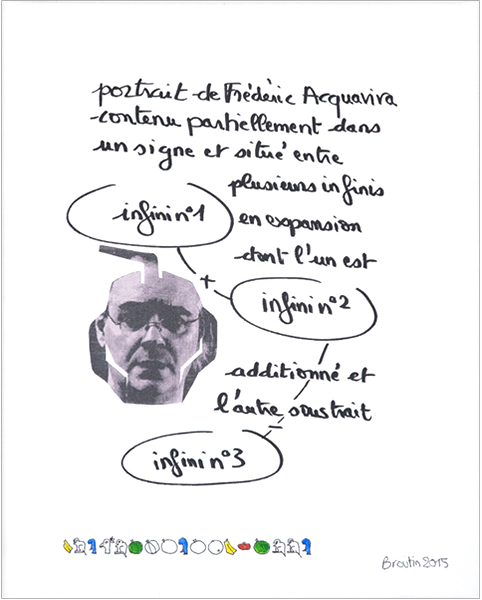 portrait de Frédéric Acquaviva
contenu partiellement dans
un signe et situé entre
plusieurs infinis
infini n°1
en expansion
dont l'un est
+
infini n°2
additionné et
l'autre soustrait
-
infini n°3
Broutin 2015